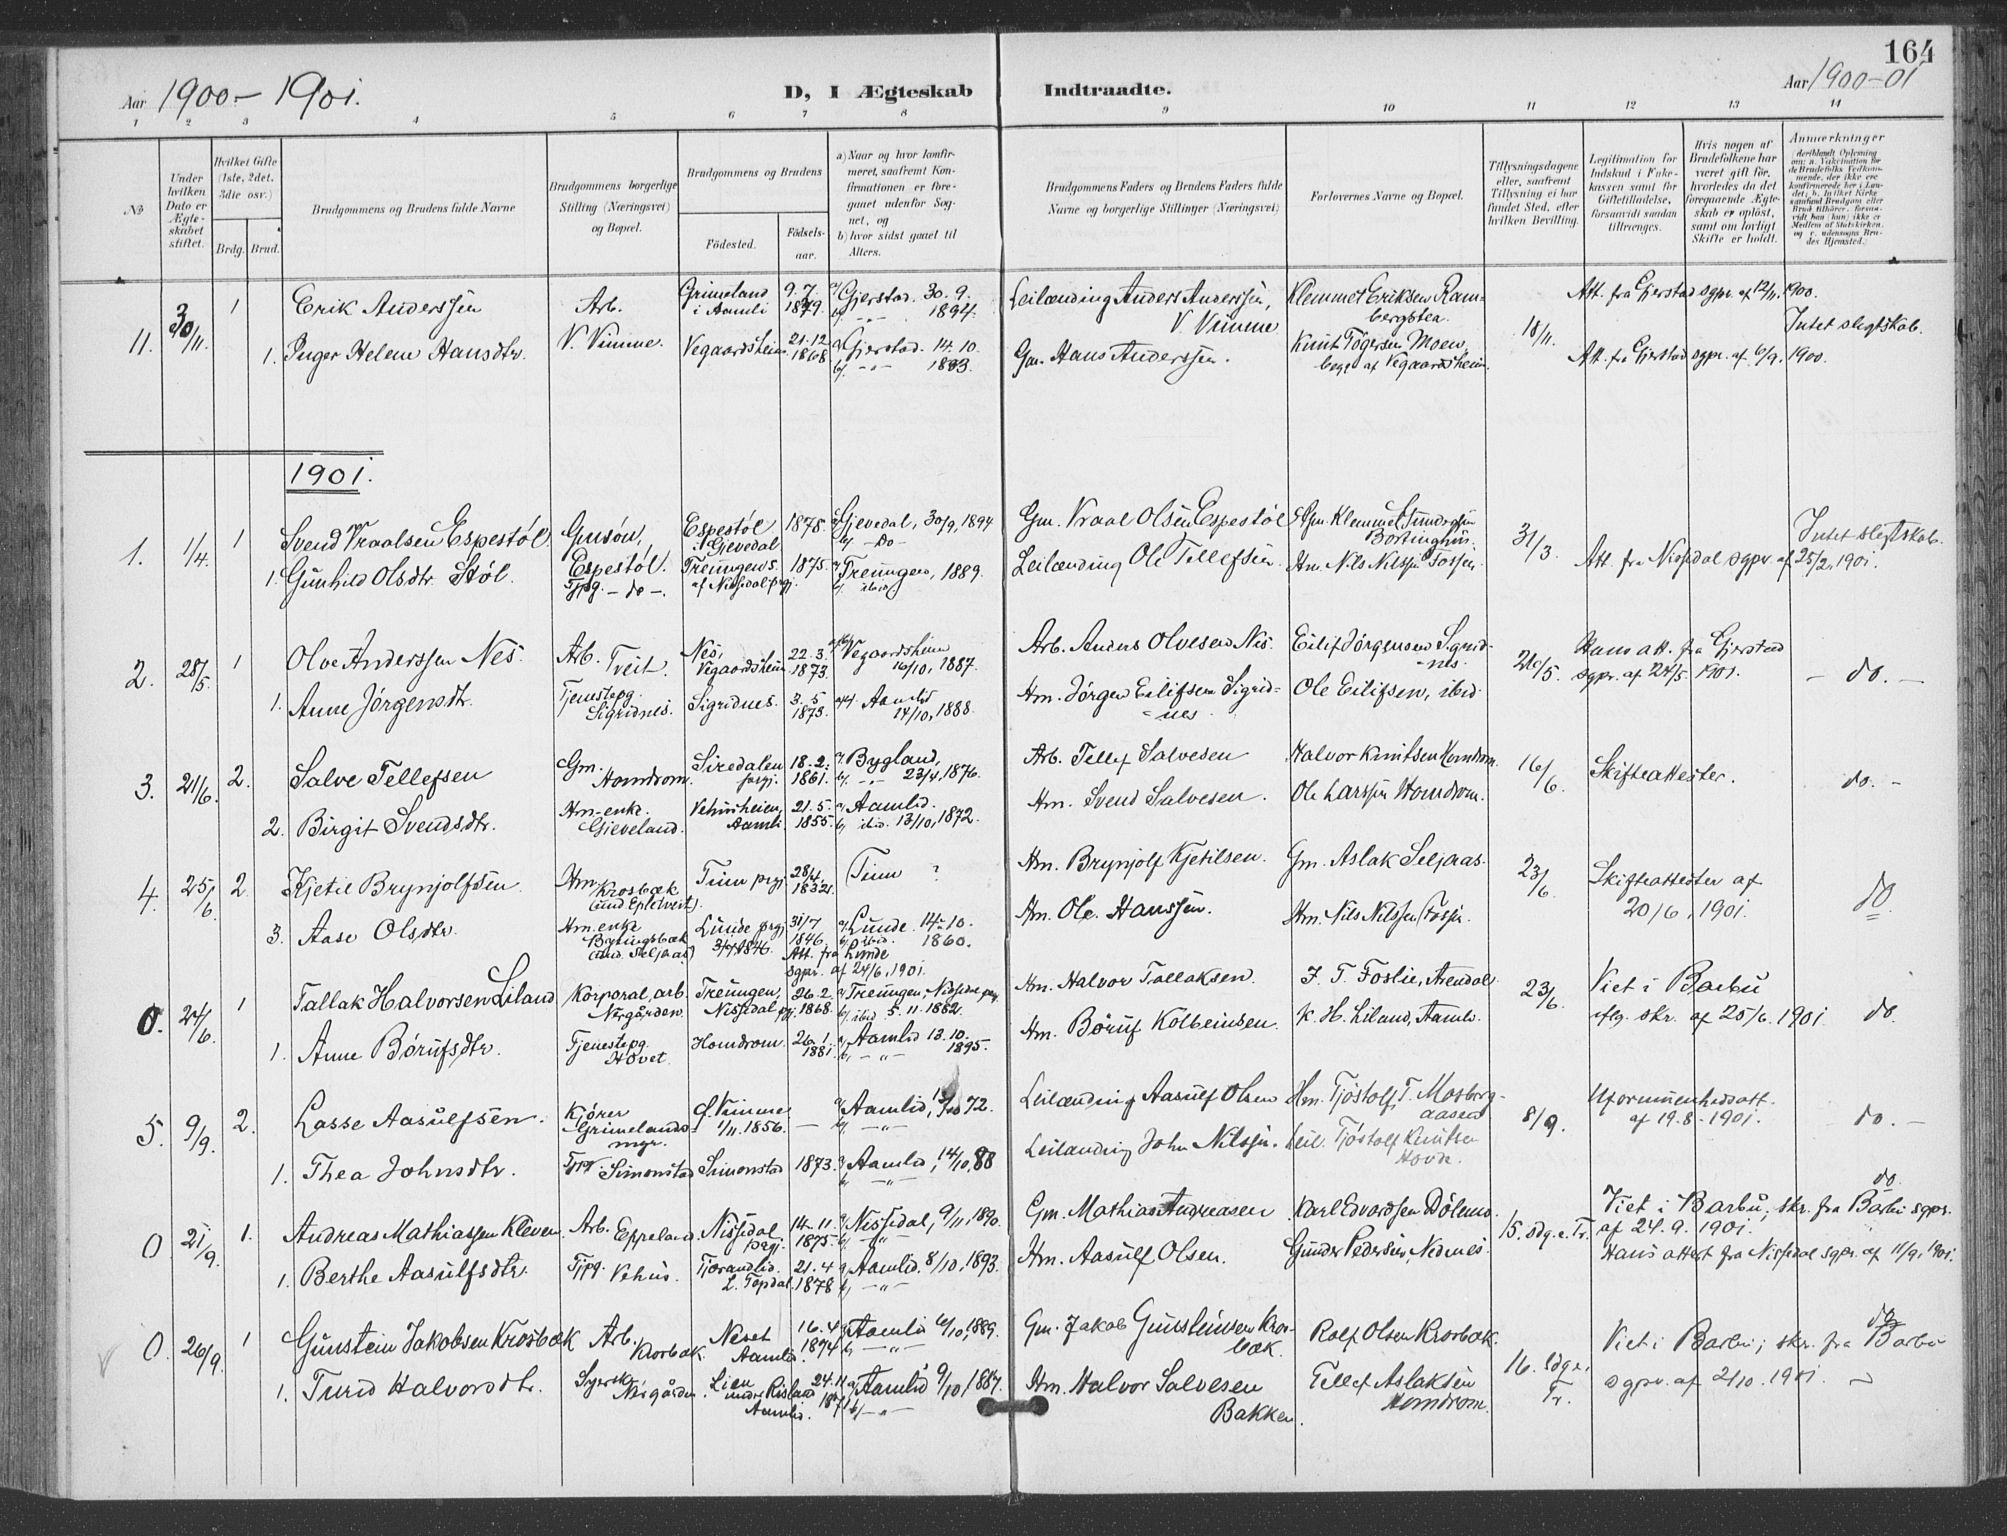 164
Aar 1900 - 1901.
D, I Ægteskab Indtraadte.
Aar 1900-01
1 2 3 4 5 6 7 8 9 10 11 12 13 14
No
Under hvilken Dato er Ægteskabet stiftet.
Hvilket Gifte (1ste, 2det, 3die osv.)
Brdg. Brud.
Brudgommens og Brudens fulde Navne
Brudgommens borgerlige Stilling (Næringsvei) og Bopæl.
Brudgommens og Brudens
Fødested. Fødselsaar.
a) Naar og hvor konfirmeret, saafremt Konfirmationen er foregaaet udenfor Sognet, og
b) hvor sidst gaaet til Alters.
Brudgommens Faders og Brudens Faders fulde Navne og borgerlige Stillinger (Næringsvei)
Forlovernes Navne og Bopæl.
Tillysningsdagene eller, saafremt Tillysning ei har fundet Sted, efter hvilken Bevilling.
Legitimation for Indskud i Enkekassen samt for Giftetilladelse, forsaavidt saadan tiltrænges.
Hvis nogen af Brudefolkene har været gift før, hvorledes da det foregaaende Ægteskab er opløst, samt om lovligt Skifte er holdt.
Anmærkninger
11. 30/11. 1 Erik Anderssen Arb. Grimeland i Aamli 9.7. 1879. a) Gjerstad. 30.9. 1894. Leilænding Anders Anderssen, V. Vimme Klemmet Eriksen Rambergstea. 18/11. Att. fra Gjerstad sgpr. af 12/11. 1900. Intet slegtskab.
1. Inger Helene Hansdtr. V. Vimme. Vegaardsheim 21.12. 1868 a) Gjerstad. 14.10. 1883. Gm. Hans Anderssen. Knut Tøgersen Moen, begge af Vegaardsheim. Att. fra Gjerstad sgpr. af 6/9. 1900.
1901.
1. 1/4. 1 Svend Vraalsen Espestøl Gmsøn, Espestøl. Espestøl Gjevedal 1878. Gjevedal, 30/9, 1894 b) -do- Gm. Vraal Olsen Espestøl 31/3. Intet slegtskab.
1. Gunhild Olsdtr. Støl. Tjpg. -do-. Treungens. af Nissedal prgj. 1875. a) Treungen, 1889. b) ibid. Leilænding Ole Tellefsen Hm. Nils Nilssen Fossen. Att. fra Nissedal sgpr. af 25/2. 1901.
2. 28/5. 1 Olve Anderssen Nes. Arb. Tveit. Nes, Vegaardsheim 22.3. 1873. Vegaardsheim 16/10, 1887. Arb. Anders Olvesen Nes. Eilif Jørgensen Sigridnes. 26/5. Hans att. fra Gjerstad sgpr. af 24/5 1901. - do. -
1. Anne Jørgensdtr. Tjenestepg. Sigridnes. Sigridnes. 3.5. 1873. Aamlid 14/10, 1888. Hm. Jørgen Eilifsen Sigridnes. Ole Eilifsen, ibid.
3. 21/6. 2. Salve Tellefsen Gm. Homdrom. Siredalen prgj. 18.2. 1861. a) Bygland, 23/4, 1876. Arb. Tellef Salvesen Halvor Knutsen Homdrom. 16/6. Skifteattester. do. -
2. Birgit Svendsdtr. Hm-enke. Gjeveland. Vehusheien, Aamli 21.5. 1855. a) Aamlid. b) ibid. 13/10, 1872. Hm. Svend Salvesen. Ole Larssen Homdrom.
4. 25/6. 2. Kjetil Brynjolfsen Hm Krosbæk (und. Epletveit). Tinn prgj. 28/4. Tinn ? Hm. Brynjolf Kjetilsen. Gm. Aslak Seljaas. 23/6. Skifteattester af 20/6, 1901. do
3. Aase Olsdtr. Hm.enke (und. Seljaas) Lunde prgj 31/7 1846. Att. fra Lunde sgpr. af 24/6, 1901. a) Lunde. 14.10. b) ibid. 1860. Hm. Ole Hanssen. Hm. Nils Nilssen Fossen.
0. 24/6. 1 Tallak Halvorsen Liland Korporal, arb. Nergården. Treungen, Nissedal pgj. 26.2. 1868. a) Treungen, Nissedal prgj. b) ibid 5.11. 1882. Hm. Halvor Tallaksen. J. T. Foslie, Arendal 23/6. Viet i Barbu eflg. skr. af 25/6. 1901. do.
1. Anne Børufsdtr. Tjenestepg. Hovet. Homdrom. 26.1. 1881. a) Aamlid 13.10. 1895. Hm. Børuf Kolbeinsen. K. H. Liland, Aamli.
5. 9/9. 2. Lasse Aasulfsen. Kjører Grimelandsmyr. Vimme 1/11. 1856. - a) Aamlid, 72. Leilænding Aasulf Olsen Hm. Tjøstolf T. Mosbergaasen 8/9. Uformuenhedsatt. af 19.8. 1901. do. -
1. Thea Johnsdtr. Simonstad Simonstad 1873. a) Aamlid, 14/10, 88 Leilænding John Nilssen. Leil. Tjøstolf Knutsen Hovde.
0 21/9. 1. Andreas Mathiassen Kleven Arb. Eppeland. Nissedal prgj. 14.11. 1875. a) Nissedal, 9/11, 1890. Gm. Mathias Andreasen Karl Edvardsen Dølemo. 15. sdg. e. Tr. Viet i Barbu, skr. fra Barbu sgpr. af 24.9. 1901. do.
1. Berthe Aasulfsdtr. Tjpg. Vehus. Tjorandlid. L. Topdal. 21.4 1878 a) Aamlid. 8/10, 1893. Hm. Aasulf Olsen. Gunder Pedersen, Nednes. Hans attest fra Nissedal sgpr. af 11/9. 1901.
0. 26/9. 1 Gunstein Jakobsen Krosbæk Arb. Krosbæk. Neset Aamlid. 16.4 1874 a) Aamlid 6/10, 1889. Gm. Jakob Gunsteinsen Krosbæk. Rolf Olsen Krosbæk. 16. sdg. e. Tr. Viet i Barbu; skr. fra Barbu sgpr. af 2/10. 1901. do.
1. Turid Halvorsdtr. Syersk Nergården. Lien under Risland Aamlid. 24.11 1871 a) Aamlid 9/10, 1887. Hm. Halvor Salvesen Bakken. Tellef Aslaksen Homdrom.